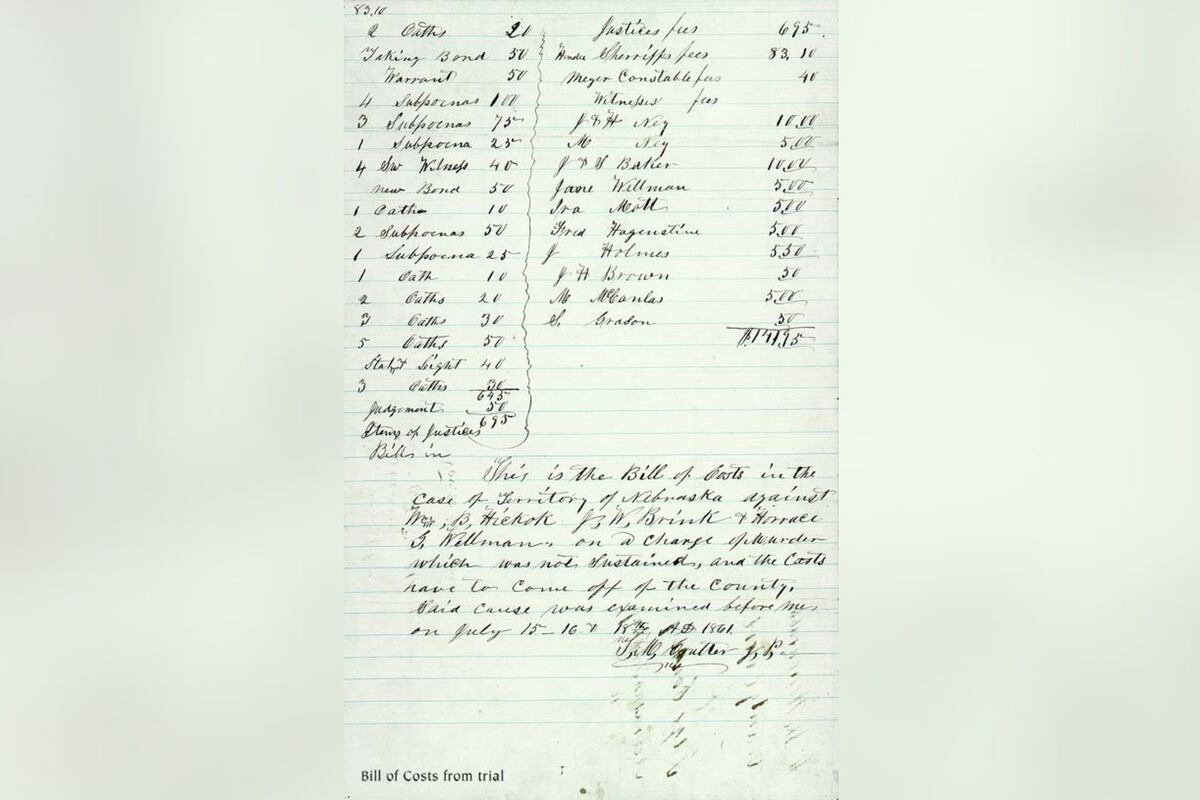 83.10
2 Oaths 20
Taking Bond 50
Warrant 50
4 Subpoenas 1 00
3 Subpoenas 75
1 Subpoena 25
4 Sw Witness 40
new Bond 50
1 Oath 10
2 Subpoenas 50
1 Subpoena 25
1 Oath 10
2 Oaths 20
3 Oaths 30
5 Oaths 50
40
3 Oaths 30
645
Judgement 50
695
of Justices
Bills in
Justices fees 695
Sherriffs fees 83,10
Meyer Constable fees 40
Witnesses fees
J & H Ney 10.00
M Ney 5.00
J & S Baker 10.00
Jane Wellman 5.00
Ira Mott 5.00
Fred Hagenstine 5.00
J Holmes 5.50
J H Brown 50
M McCanlas 5.00
S. Grason 50
This is the Bill of Costs in the
Case of Territory of Nebraska against
Wm, B, Hickok J, W, Brink & Horrace
G, Wellman, on a Charge of Murder
which was not Sustained, and the Costs
have to come off of the County,
Said cause was examined before me
on July 15 - 16 & 18th AD 1861.
J, P,
Bill of Costs from trial